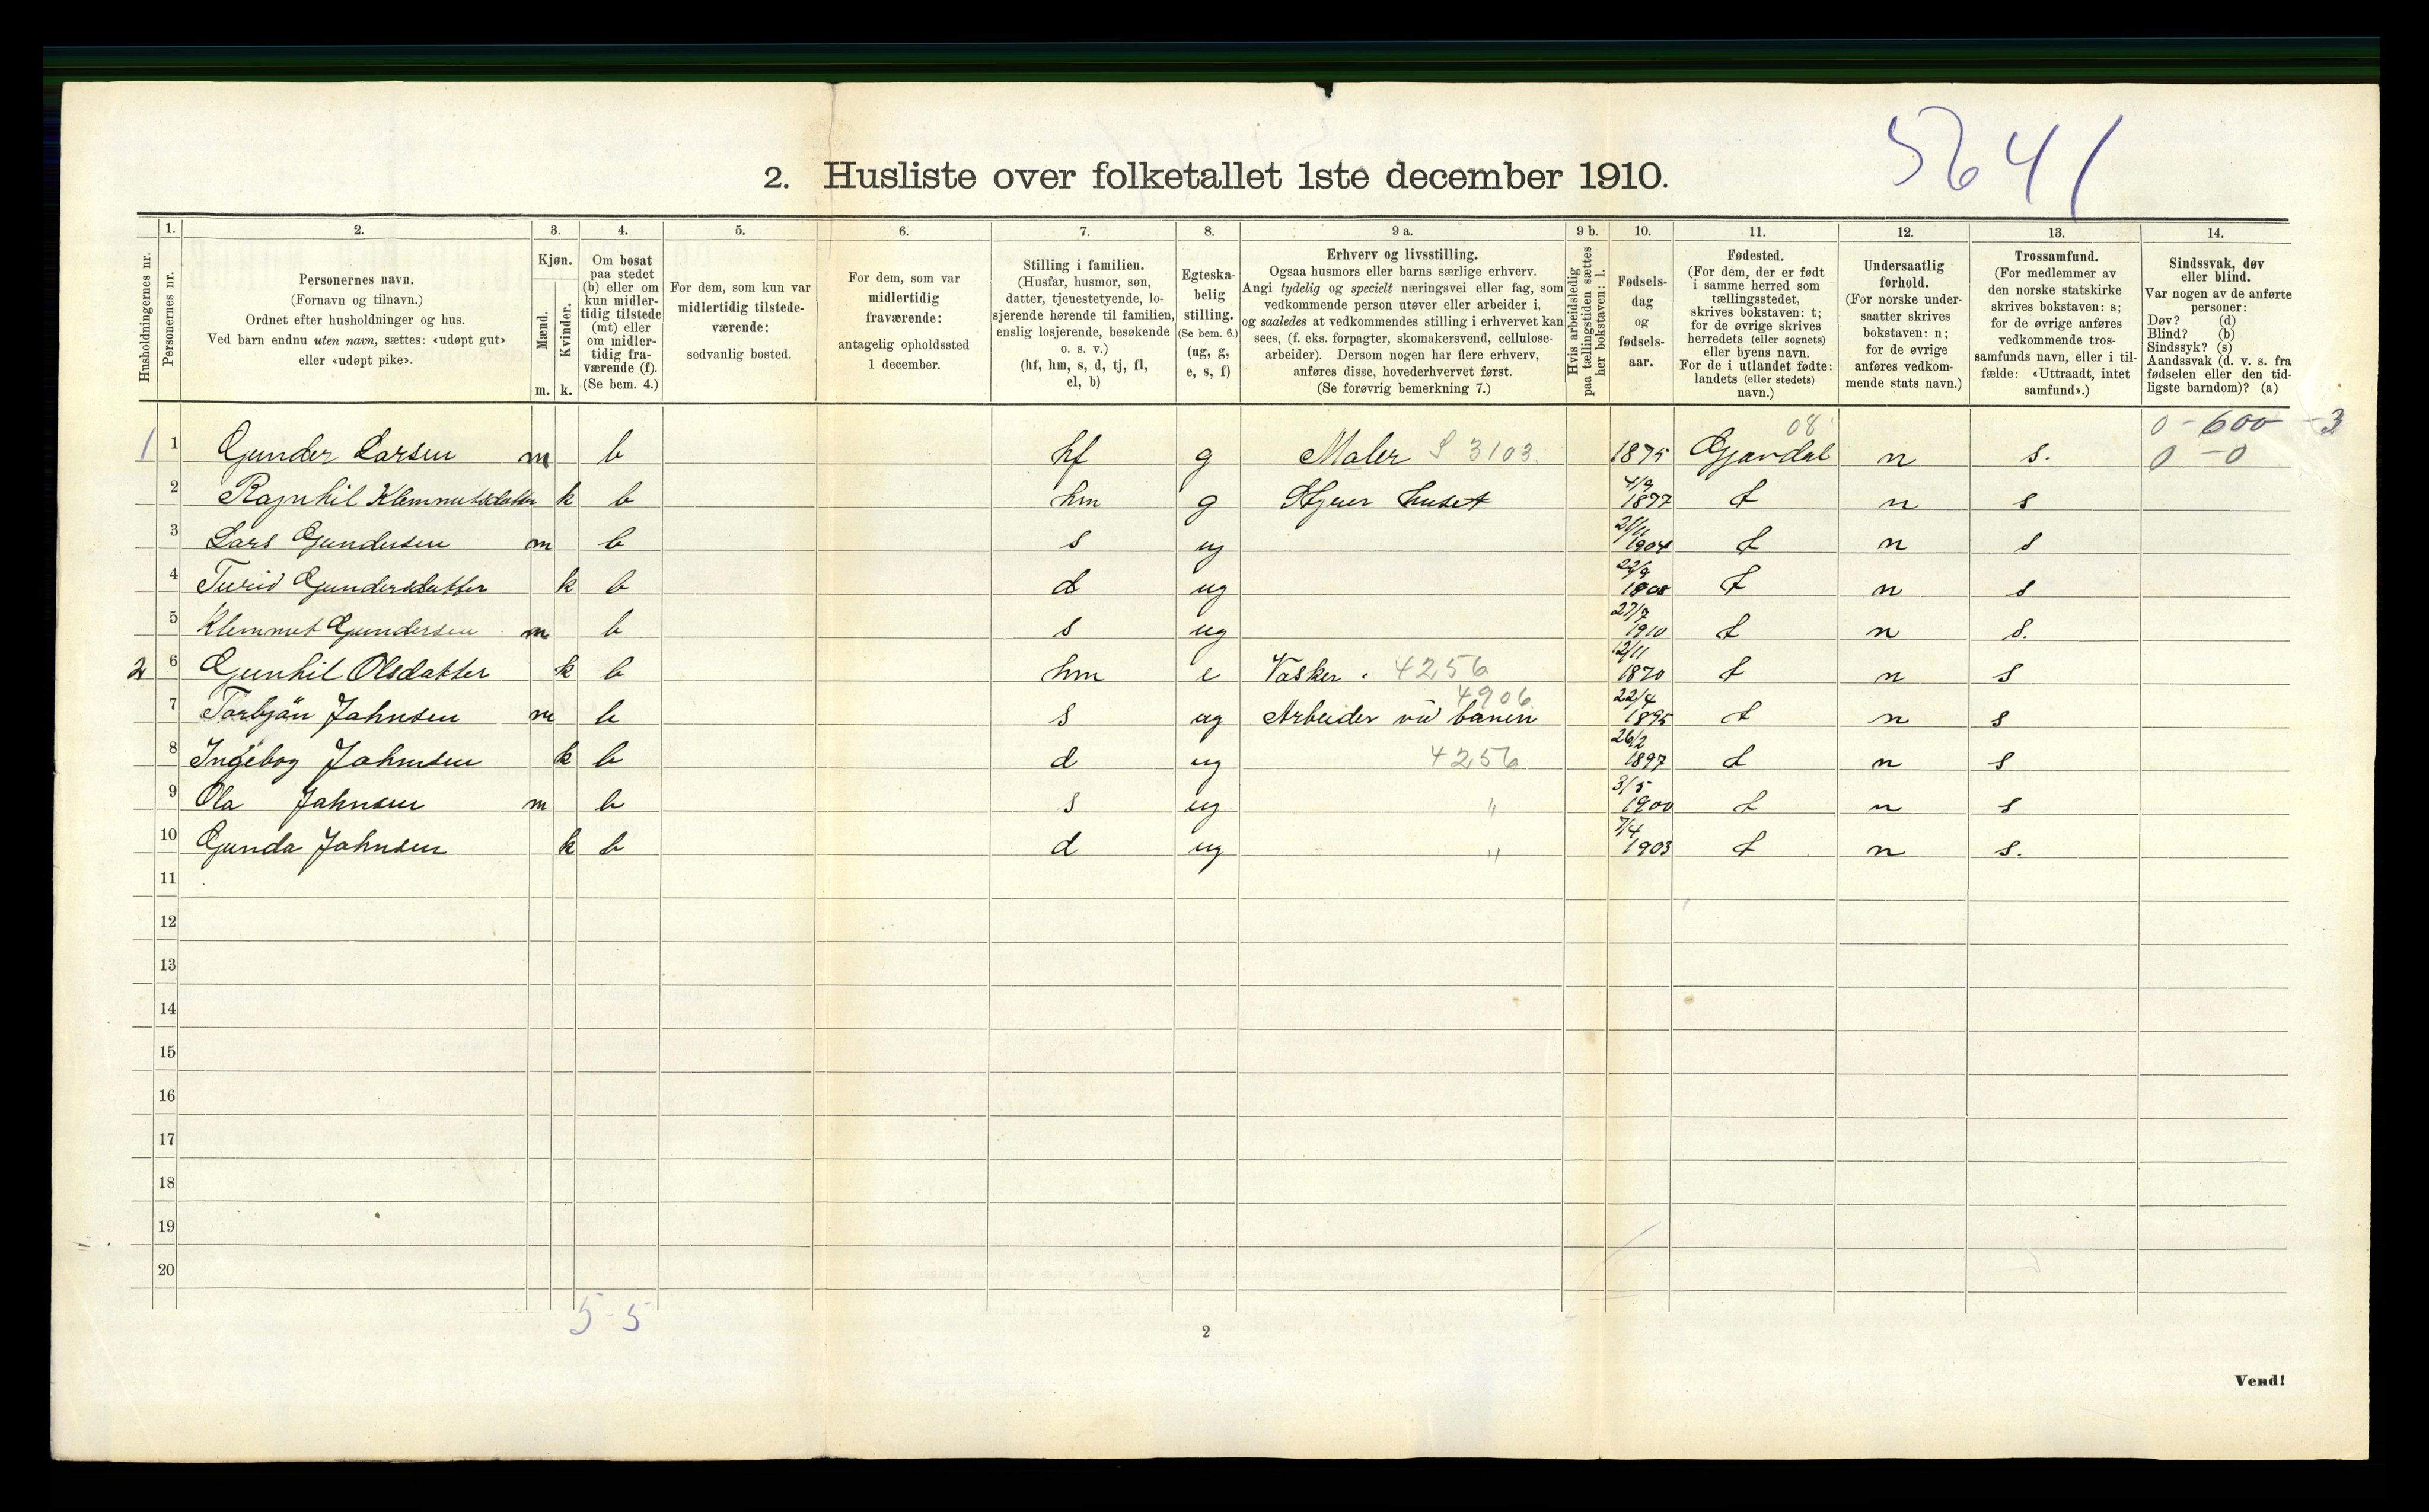 5641
2. Husliste over folketallet 1ste december 1910.
Husholdningernes nr.
1.
Personernes nr.
2.
Personernes navn.
(Fornavn og tilnavn.)
Ordnet efter husholdninger og hus.
Ved barn endnu uten navn, sættes: «udøpt gut»
eller «udøpt pike».
3.
Kjøn.
Mænd.
Kvinder.
m. k.
4.
Om bosat
paa stedet
(b) eller om
kun midler-
tidig tilstede
(mt) eller
om midler-
tidig fra-
værende (f).
(Se bem. 4.)
5.
For dem, som kun var
midlertidig tilstede-
værende:
sedvanlig bosted.
6.
For dem, som var
midlertidig
fraværende:
antagelig opholdssted
1 december.
7.
Stilling i familien.
(Husfar, husmor, søn,
datter, tjenestetyende, lo-
sjerende hørende til familien,
enslig losjerende, besøkende
o. s. v.)
(hf, hm, s, d, tj, fl,
el, b)
8.
Egteska-
belig
stilling.
(Se bem. 6.)
(ug, g,
e, s, f)
9 a.
Erhverv og livsstilling.
Ogsaa husmors eller barns særlige erhverv.
Angi tydelig og specielt næringsvei eller fag, som
vedkommende person utøver eller arbeider i,
og saaledes at vedkommendes stilling i erhvervet kan
sees, (f. eks. forpagter, skomakersvend, cellulose-
arbeider). Dersom nogen har flere erhverv,
anføres disse, hovederhvervet først.
(Se forøvrig bemerkning 7.)
9 b.
Hvis arbeidsledig
paa tællingstiden sættes
her bokstaven: l.
10.
Fødsels-
dag
og
fødsels-
aar.
11.
Fødested.
(For dem, der er født
i samme herred som
tællingsstedet,
skrives bokstaven: t;
for de øvrige skrives
herredets (eller sognets)
eller byens navn.
For de i utlandet fødte:
landets (eller stedets)
navn.)
12.
Undersaatlig
forhold.
(For norske under-
saatter skrives
bokstaven: n;
for de øvrige
anføres vedkom-
mende stats navn.)
13.
Trossamfund.
(For medlemmer av
den norske statskirke
skrives bokstaven: s;
for de øvrige anføres
vedkommende tros-
samfunds navn, eller i til-
fælde: «Uttraadt, intet
samfund».)
14.
Sindssvak, døv
eller blind.
Var nogen av de anførte
personer:
Døv? (d)
Blind? (b)
Sindssyk? (s)
Aandssvak (d. v. s. fra
fødselen eller den tid-
ligste barndom)? (a)
08 0 - 600 - 3
1 1 Gunder Larsen m b hf g Maler S 3103 1875 Gjøvdal n s. 0 - 0
2 Ragnhil Klemmetsdatter k b hm g Styrer huset 4/9 1877 t n s
3 Lars Gundersen m b s ug 1904 t n s
4 Turid Gundersdatter k b d ug 1908 t n s
5 Klemmet Gundersen m b s ug 27/7 1910 t n s.
2 6 Gunhil Olsdatter k b hm e Vasker. 4256 12/11 1870 t n s
7 Torbjön Jahnsen m b s ug Arbeider vid banen 4906 22/4 1895 t n s
8 Ingebog Jahnsen k b d ug 4256 26/2 1897 t n s
9 Ola Jahnsen m b s ug " 3/5 1900 t n s
10 Gunda Jahnsen k b d ug " 7/4 1903 t n s.
11
12
13
14
15
16
17
18
19
20
5-5
2
Vend!